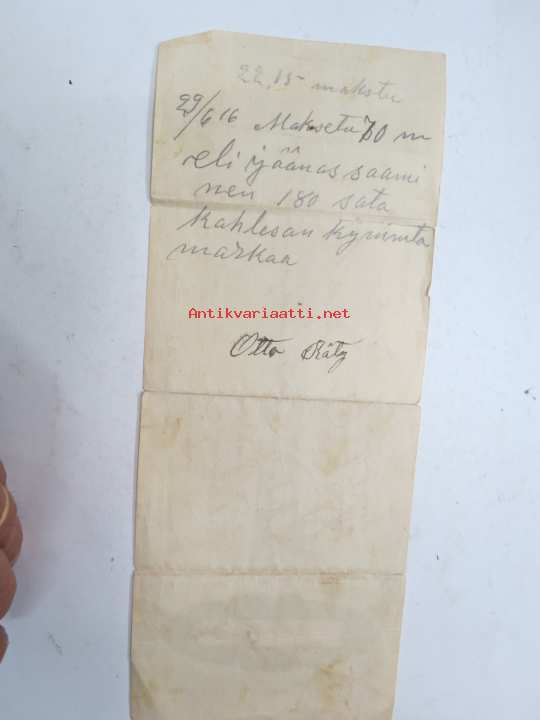 22,15 makstu
29/6 16 Maksetu 70 m
eli jäänäs saami
nen 180 sata
kahlesan kymmta
markaa
Antikvariaatti.net
Otto Räty